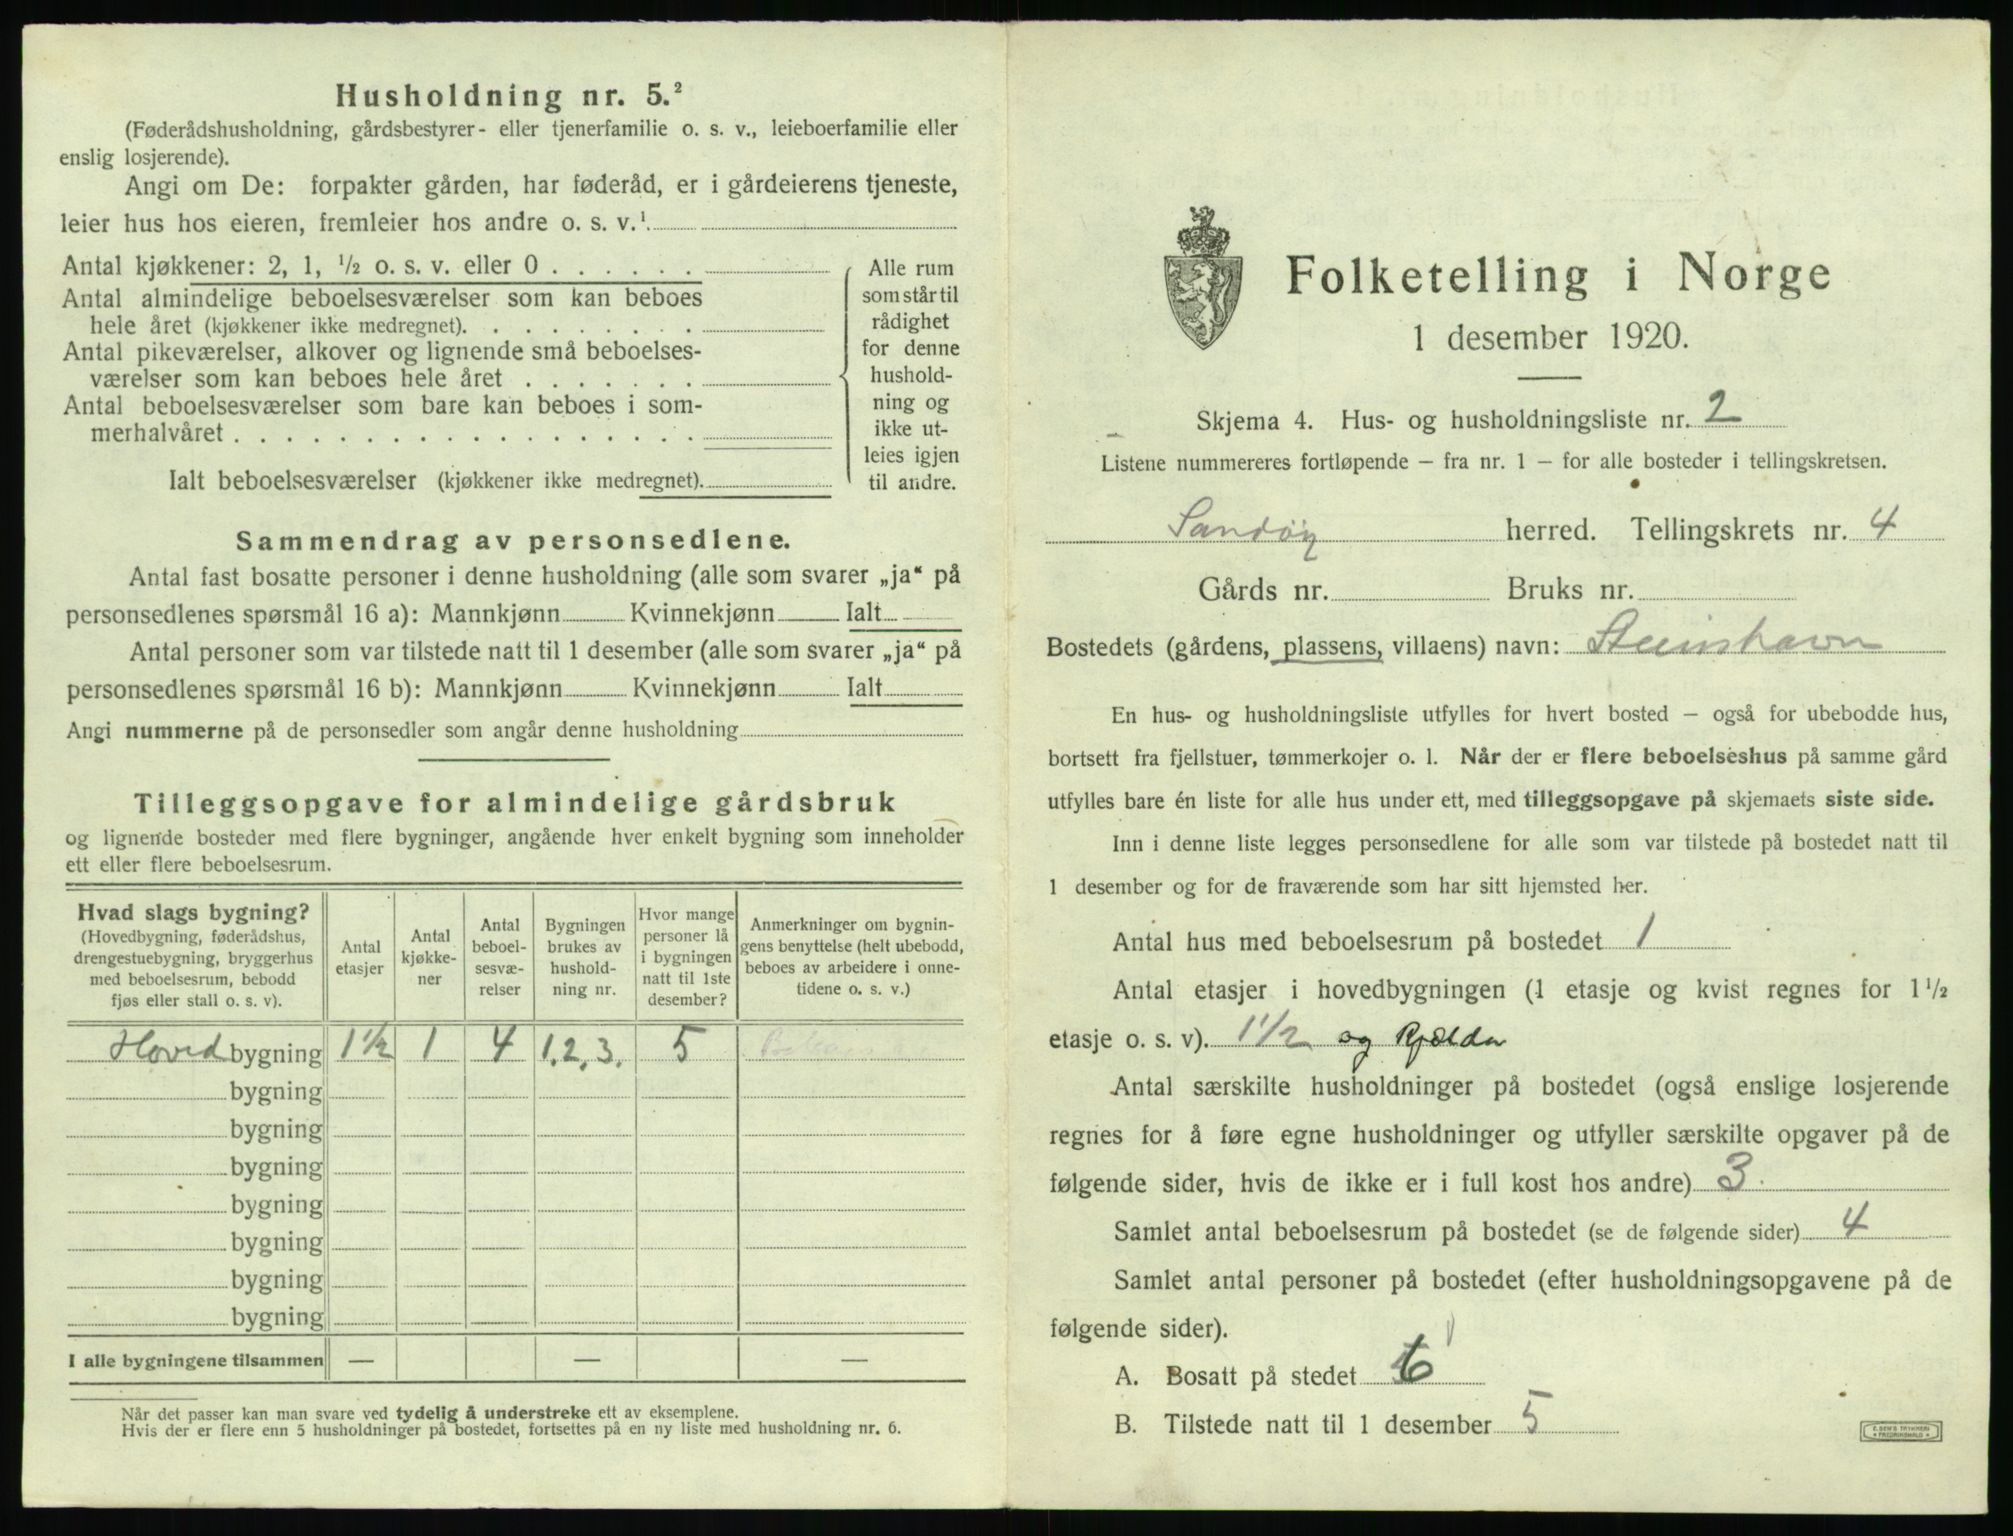 Husholdning nr. 5.²
(Føderådshusholdning, gårdsbestyrer- eller tjenerfamilie o. s. v., leieboerfamilie eller
enslig losjerende).
Angi om De: forpakter gården, har føderåd, er i gårdeierens tjeneste,
leier hus hos eieren, fremleier hos andre o. s. v.¹
Antal kjøkkener: 2, 1, ½ o. s. v. eller 0 . . . . . .
Antal almindelige beboelsesværelser som kan beboes
hele året (kjøkkener ikke medregnet). . . . . . . . .
Antal pikeværelser, alkover og lignende små beboelses-
værelser som kan beboes hele året . . . . . . .
Antal beboelsesværelser som bare kan beboes i som-
merhalvåret . . . . . . . . . . . . . . . . . .
Ialt beboelsesværelser (kjøkkener ikke medregnet).
Alle rum
som står til
rådighet
for denne
hushold-
ning og
ikke ut-
leies igjen
til andre.
Sammendrag av personsedlene.
Antal fast bosatte personer i denne husholdning (alle som svarer „ja“ på
personsedlenes spørsmål 16 a): Mannkjønn Kvinnekjønn Ialt
Antal personer som var tilstede natt til 1 desember (alle som svarer „ja“ på
personsedlenes spørsmål 16 b): Mannkjønn Kvinnekjønn Ialt
Angi nummerne på de personsedler som angår denne husholdning
Tilleggsopgave for almindelige gårdsbruk
og lignende bosteder med flere bygninger, angående hver enkelt bygning som inneholder
ett eller flere beboelsesrum.
Hvad slags bygning?
(Hovedbygning, føderådshus,
drengestuebygning, bryggerhus
med beboelsesrum, bebodd
fjøs eller stall o. s. v).
Antal
etasjer
Antal
kjøkke-
ner
Antal
beboel-
sesvæ-
relser
Bygningen
brukes av
hushold-
ning nr.
Hvor mange
personer lå
i bygningen
natt til 1ste
desember?
Anmerkninger om bygnin-
gens benyttelse (helt ubebodd,
beboes av arbeidere i onne-
tidene o. s. v.)
Hoved bygning 1½ 1 4 1.2.3. 5
bygning
bygning
bygning
bygning
bygning
bygning
bygning
I alle bygningene tilsammen — — —
Når det passer kan man svare ved tydelig å understreke ett av eksemplene.
Hvis der er flere enn 5 husholdninger på bostedet, fortsettes på en ny liste med husholdning nr. 6.
Folketelling i Norge
1 desember 1920.
Skjema 4. Hus- og husholdningsliste nr. 2
Listene nummereres fortløpende – fra nr. 1 – for alle bosteder i tellingskretsen.
Sandøy herred. Tellingskrets nr. 4
Gårds nr. Bruks nr.
Bostedets (gårdens, plassens, villaens) navn: Steinshavn
En hus- og husholdningsliste utfylles for hvert bosted – også for ubebodde hus,
bortsett fra fjellstuer, tømmerkojer o. l. Når der er flere beboelseshus på samme gård
utfylles bare én liste for alle hus under ett, med tilleggsopgave på skjemaets siste side.
Inn i denne liste legges personsedlene for alle som var tilstede på bostedet natt til
1 desember og for de fraværende som har sitt hjemsted her.
Antal hus med beboelsesrum på bostedet 1
Antal etasjer i hovedbygningen (1 etasje og kvist regnes for 1½
etasje o. s. v). 1½ og Kjælder
Antal særskilte husholdninger på bostedet (også enslige losjerende
regnes for å føre egne husholdninger og utfyller særskilte opgaver på de
følgende sider, hvis de ikke er i full kost hos andre) 3
Samlet antal beboelsesrum på bostedet (se de følgende sider) 4
Samlet antal personer på bostedet (efter husholdningsopgavene på de
følgende sider).
A. Bosatt på stedet 6
B. Tilstede natt til 1 desember 5